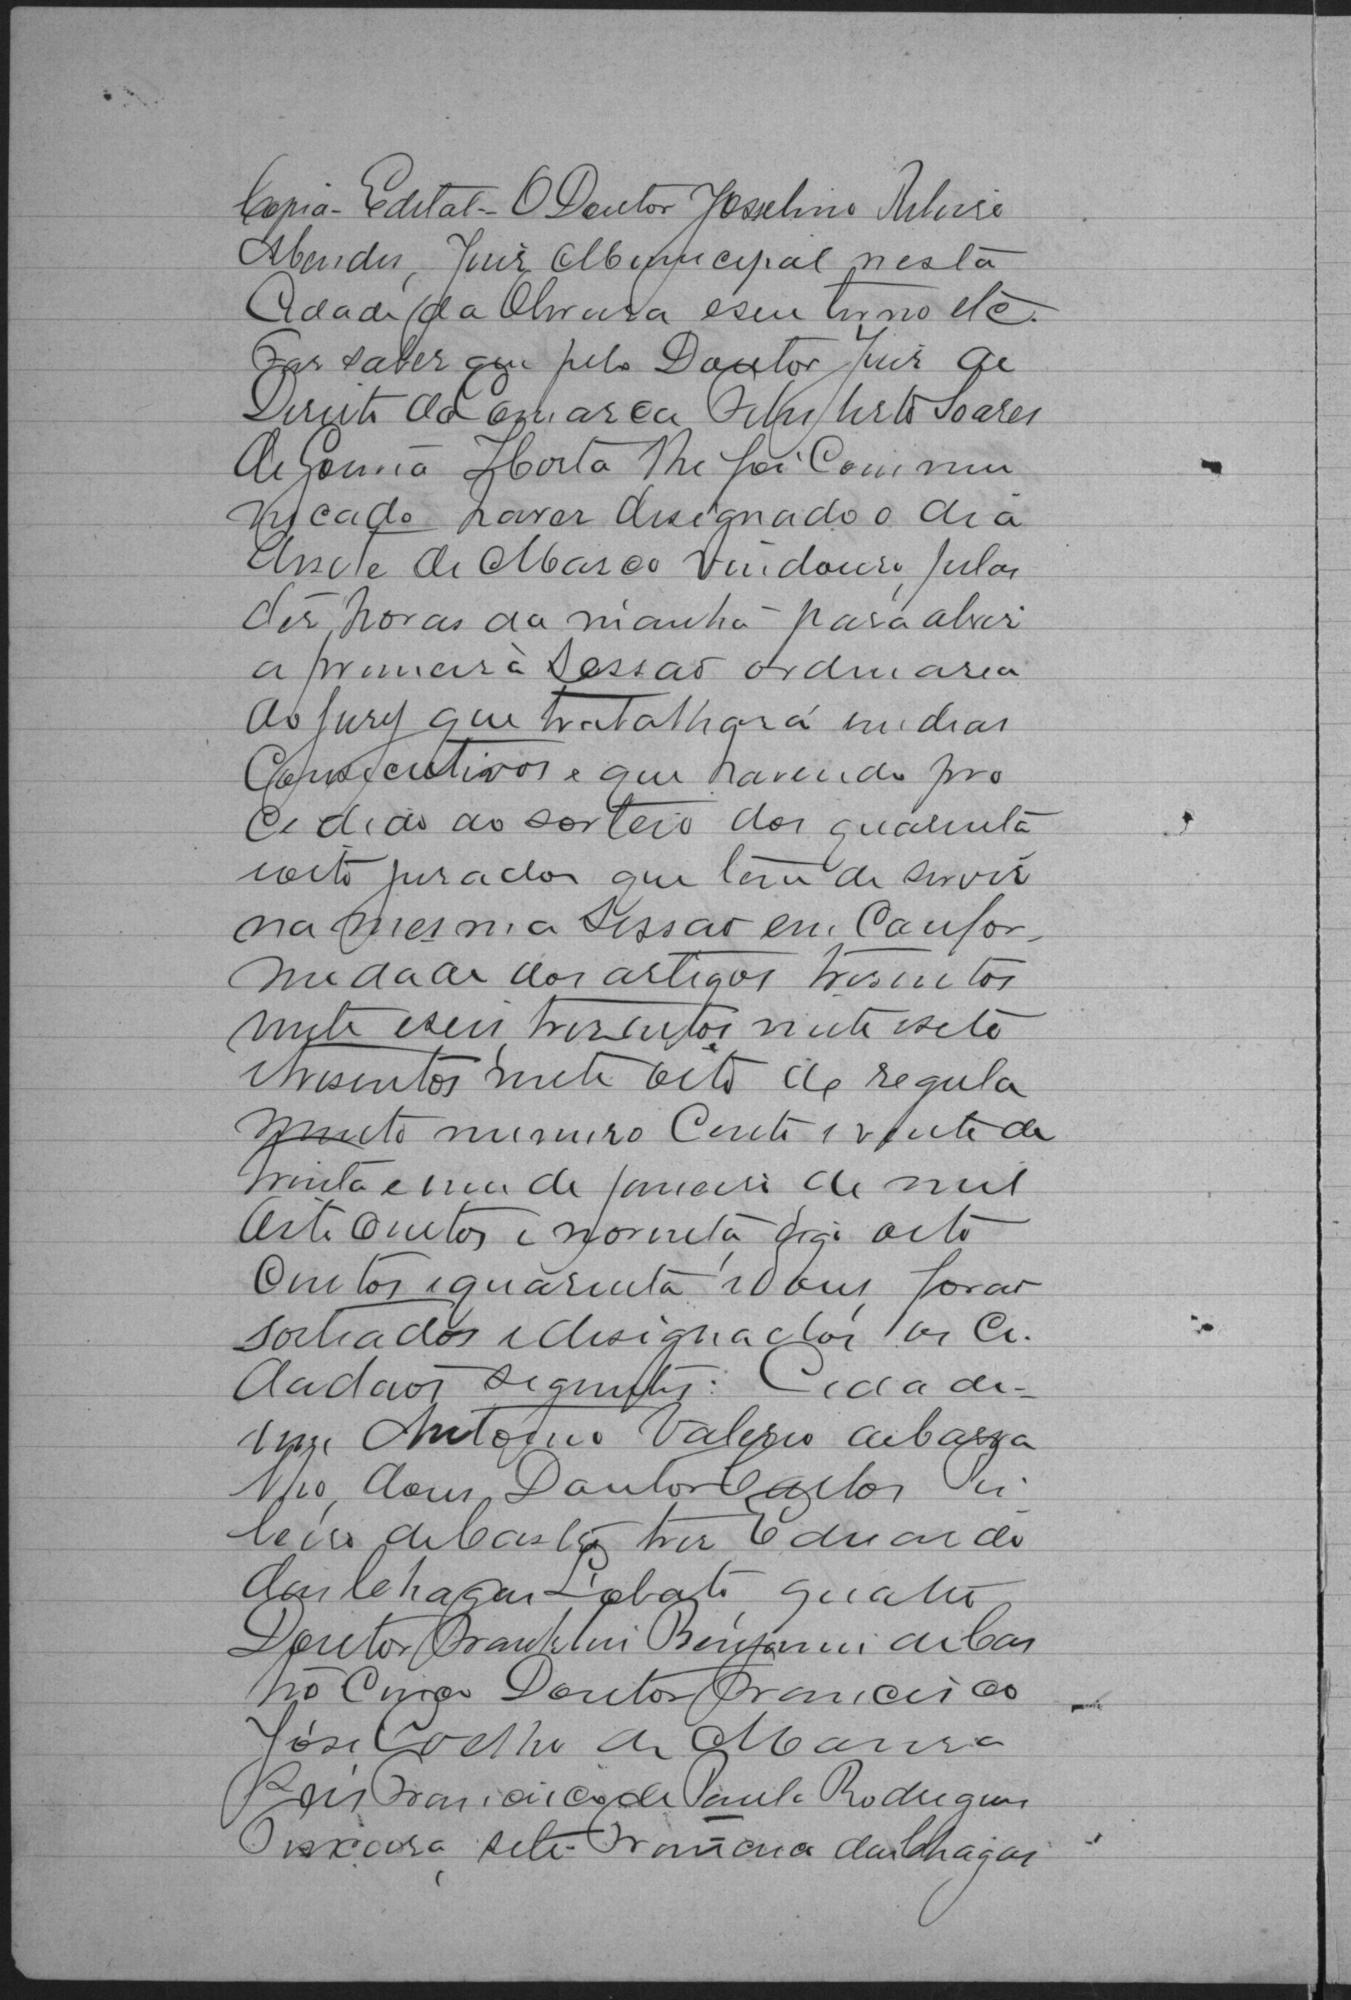 Copia - Edital - O Doutor Josselino Ribeiro
Mendes, Juiz Municipal nesta
Cidade da Oliveira e seu termo etc.
Faz saber que pelo Doutor Juiz de
Direito da Comarca Felisberto Soares
de Gouvia Horta lhe foi Commu
nicado haver designado o dia
desete de Março vindouro, pelas
dez horas da manhã para abrir
a primeira Sessaõ ordinaria
do Jury que trabalhará em dias
Consecutivos e que havendo pro
cedido ao sorteio dos quarenta
e oito jurados que tem de servir
na mesma Sessaõ em Confor-
midade dos artigos trezentos
vinte e seis, trezentos vinte e sete
e trezentos vinte oito de regula
mento numero Cento e vinte de
trinta e um de Janeiro de mil
oito centos e noventa, digo oito
centos e quarenta e dous, foraõ
sorteados e designados os Ci-
dadaõs seguintes: Cidade-
um, Antonio Valerio de Carva
lho, dous, Doutor Carlos Ri
beiro de Castro, tres Eduardo
das Chagas Lobato, quatro
Doutor Franklin Benjamim de Cas
tro Cinco Doutor Francisco
José Coelho de Moura
Seis Francisco de Paula Rodrigues
Teixeira, sete Francisco das Chagas